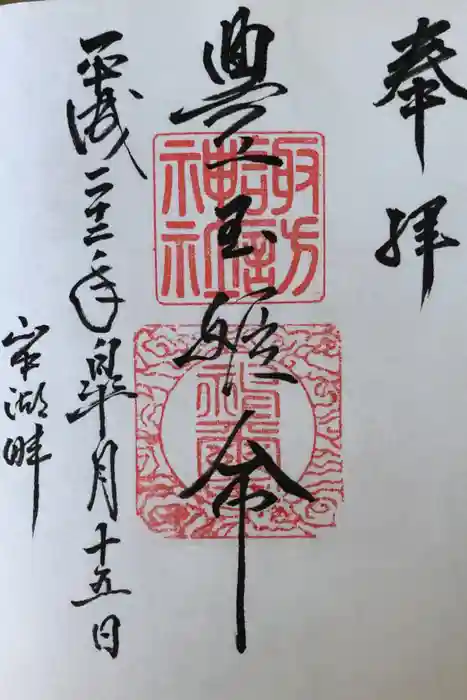 奉拝
豊玉姫命
諏訪
神社
平成二十二年皐月十五日
山中湖畔